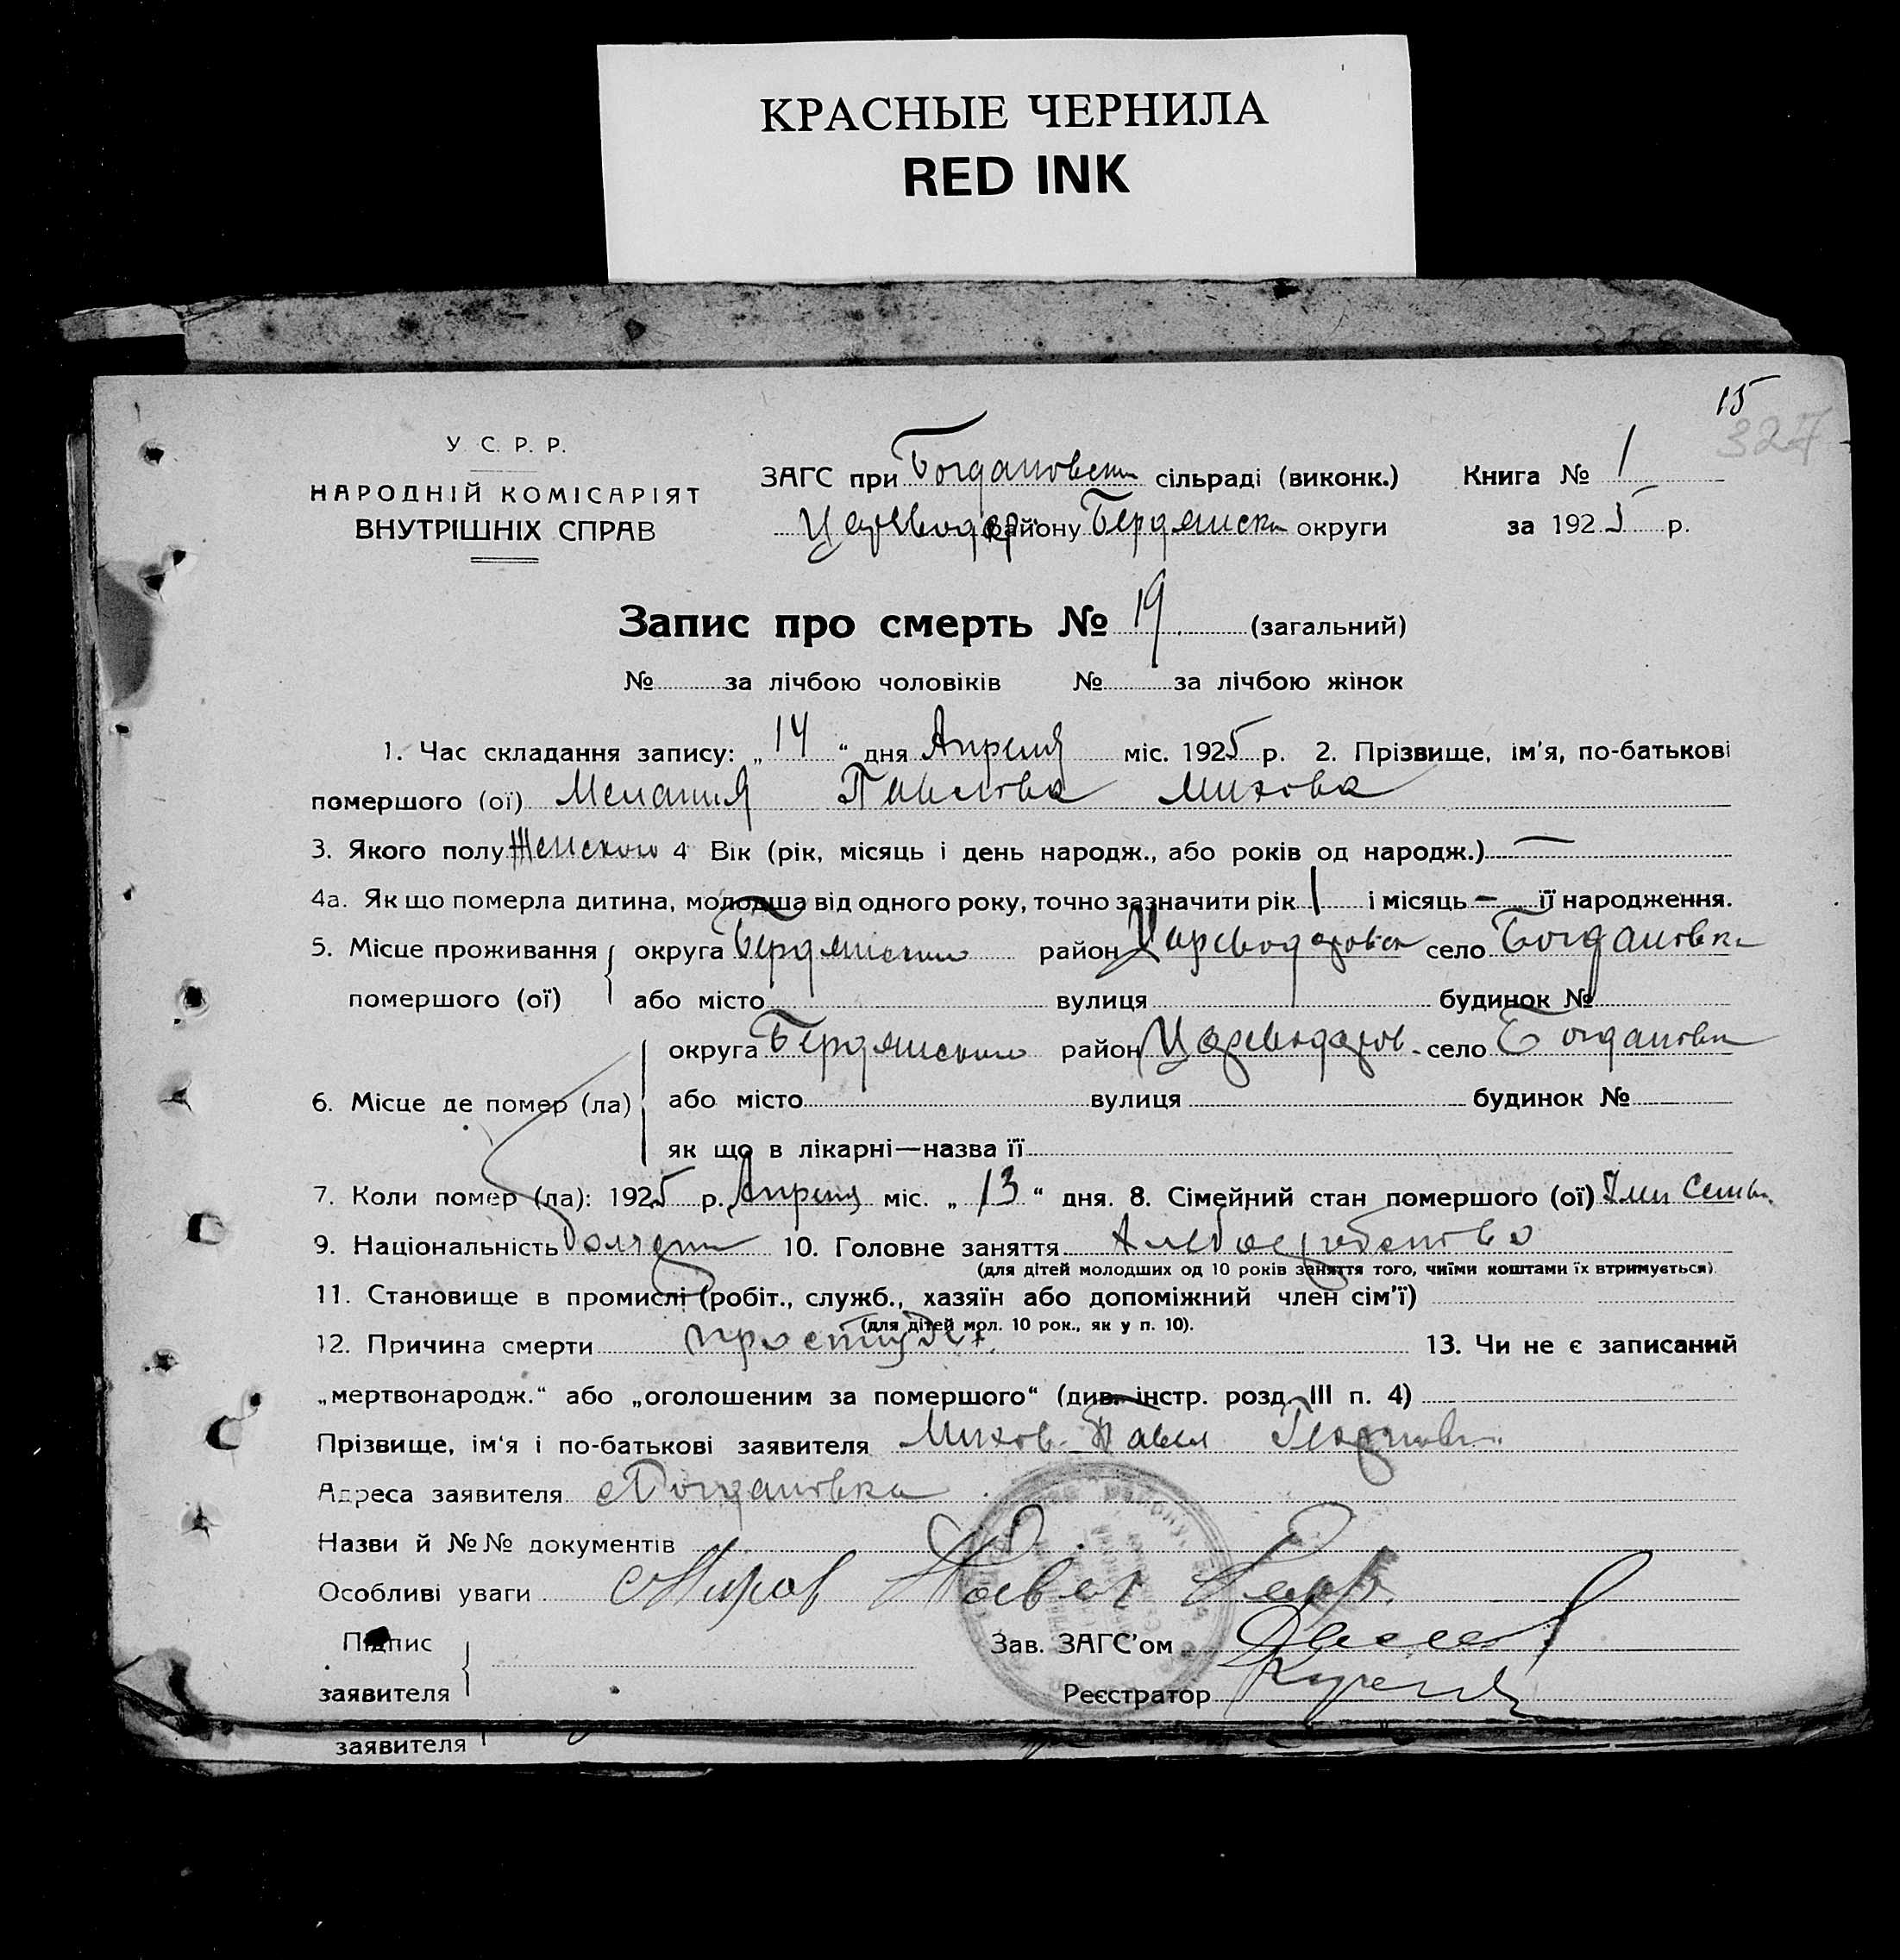 КРАСНЫЕ ЧЕРНИЛА
RED INK
15
327
У. С. Р. Р.
НАРОДНІЙ КОМІСАРІЯТ
ВНУТРІШНІХ СПРАВ
ЗАГС при Богдановск сільраді (виконк.) Книга № 1
Цареводар району Бердянск округи за 1925 р.
Запис про смерть № 19 (загальний)
№ за лічбою чоловіків № за лічбою жінок
1. Час складання запису: „14“ дня Апреля міс. 1925 р. 2. Прізвище, ім'я, по-батькові
помершого (ої) Мелания Павлова Михова
3. Якого полу Женского 4 Вік (рік, місяць і день народж., або років од народж.) —
4а. Як що померла дитина, молодша від одного року, точно зазначити рік 1 і місяць — її народження.
5. Місце проживання округа Бердянского район Цареводаровск село Богдановка
помершого (ої) або місто вулиця будинок №
округа Бердянского район Цареводаров. село Богдановка
6. Місце де помер (ла) або місто вулиця будинок №
як що в лікарні—назва її
7. Коли помер (ла): 1925 р. Апреля міс. „13“ дня. 8. Сімейний стан помершого (ої) Член Семьи
9. Національність болгари 10. Головне заняття Хлеборобство
(для дітей молодших од 10 років заняття того, чиїми коштами їх втримується)
11. Становище в промислі (робіт., служб., хазяїн або допоміжний член сім'ї)
(для дітей мол. 10 рок., як у п. 10).
12. Причина смерти простуда 13. Чи не є записаний
„мертвонародж.“ або „оголошеним за помершого“ (див. інстр. розд. III п. 4)
Прізвище, ім'я і по-батькові заявителя Михов Павел
Адреса заявителя Богдановка
Назви й №№ документів
Особливі уваги Михов Павел
Підпис Зав. ЗАГС'ом
заявителя Реєстратор
заявителя